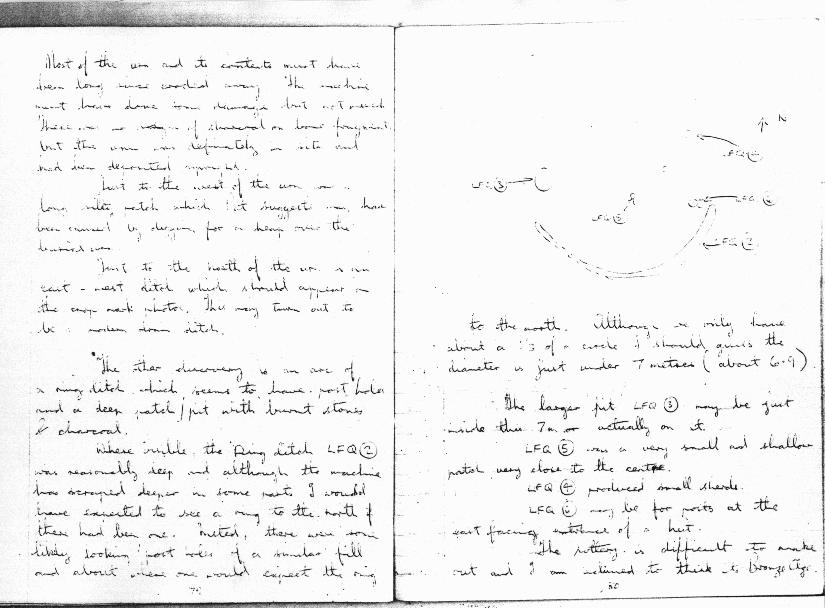 Most of the urn and its contents must have
been long since carried away. The machine
must have done some damage but not much
There was no sign of charcoal or bone fragments
but the urn was definitely in situ and
had been decorated
Just to the west of the urn was a
long patch which suggests may have
been caused by digging for a heap over the
urn
Just to the north of the urn is an
east - west ditch which should appear on
the crop mark photos. This may turn out to
be a modern drain ditch.
The other discovery is an arc of
a ring ditch which seems to have post holes
and a deep patch/pit with burnt stones
& charcoal.
Where visible the Ring ditch LFQ ②
was reasonably deep and although the machine
has scraped deeper in some parts I would
have expected to see a ring to the north if
there had been one. Instead, there were some
likely looking post holes of a similar fill
and about where one would expect the ring
79
N
LFQ ④
LFQ ③
LFQ ⑥
LFQ ⑤
LFQ ②
to the north. Although we only have
about a 1/3 of a circle I should guess the
diameter is just under 7 metres (about 6.9)
The larger pit LFQ ③ may be just
inside this 7m or actually on it.
LFQ ⑤ was a very small and shallow
patch very close to the centre.
LFQ ④ produced small sherds.
LFQ ⑥ may be for posts at the
east facing entrance of a hut.
The pottery is difficult to make
out and I am inclined to think its Bronze Age.
80